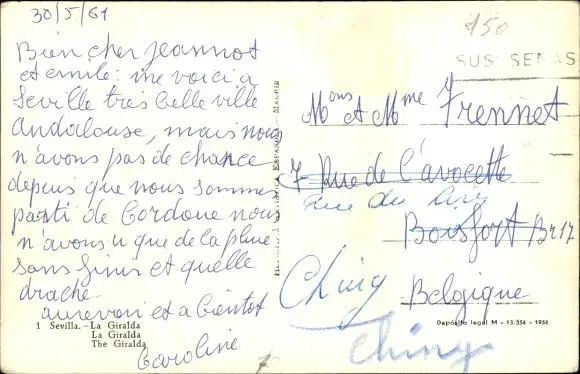 30/5/61
Bien cher Jeannot
et emile: me voici a
Seville très belle ville
andalouse, mais nous
n'avons pas de chance
depuis que nous sommes
parti de Cordoue nous
n'avons u que de la pluie
sans finir et quelle
drache
aurevoir et a bientot
Caroline
1 Sevilla.-La Giralda
La Giralda
The Giralda
150
SUS SEÑAS
Mons et Mme Frennet
7 Rue de l'avocette
rue du
Boitsfort Br 17
Belgique
Chiny
Chiny
Depósito legal M - 13.354 - 1958